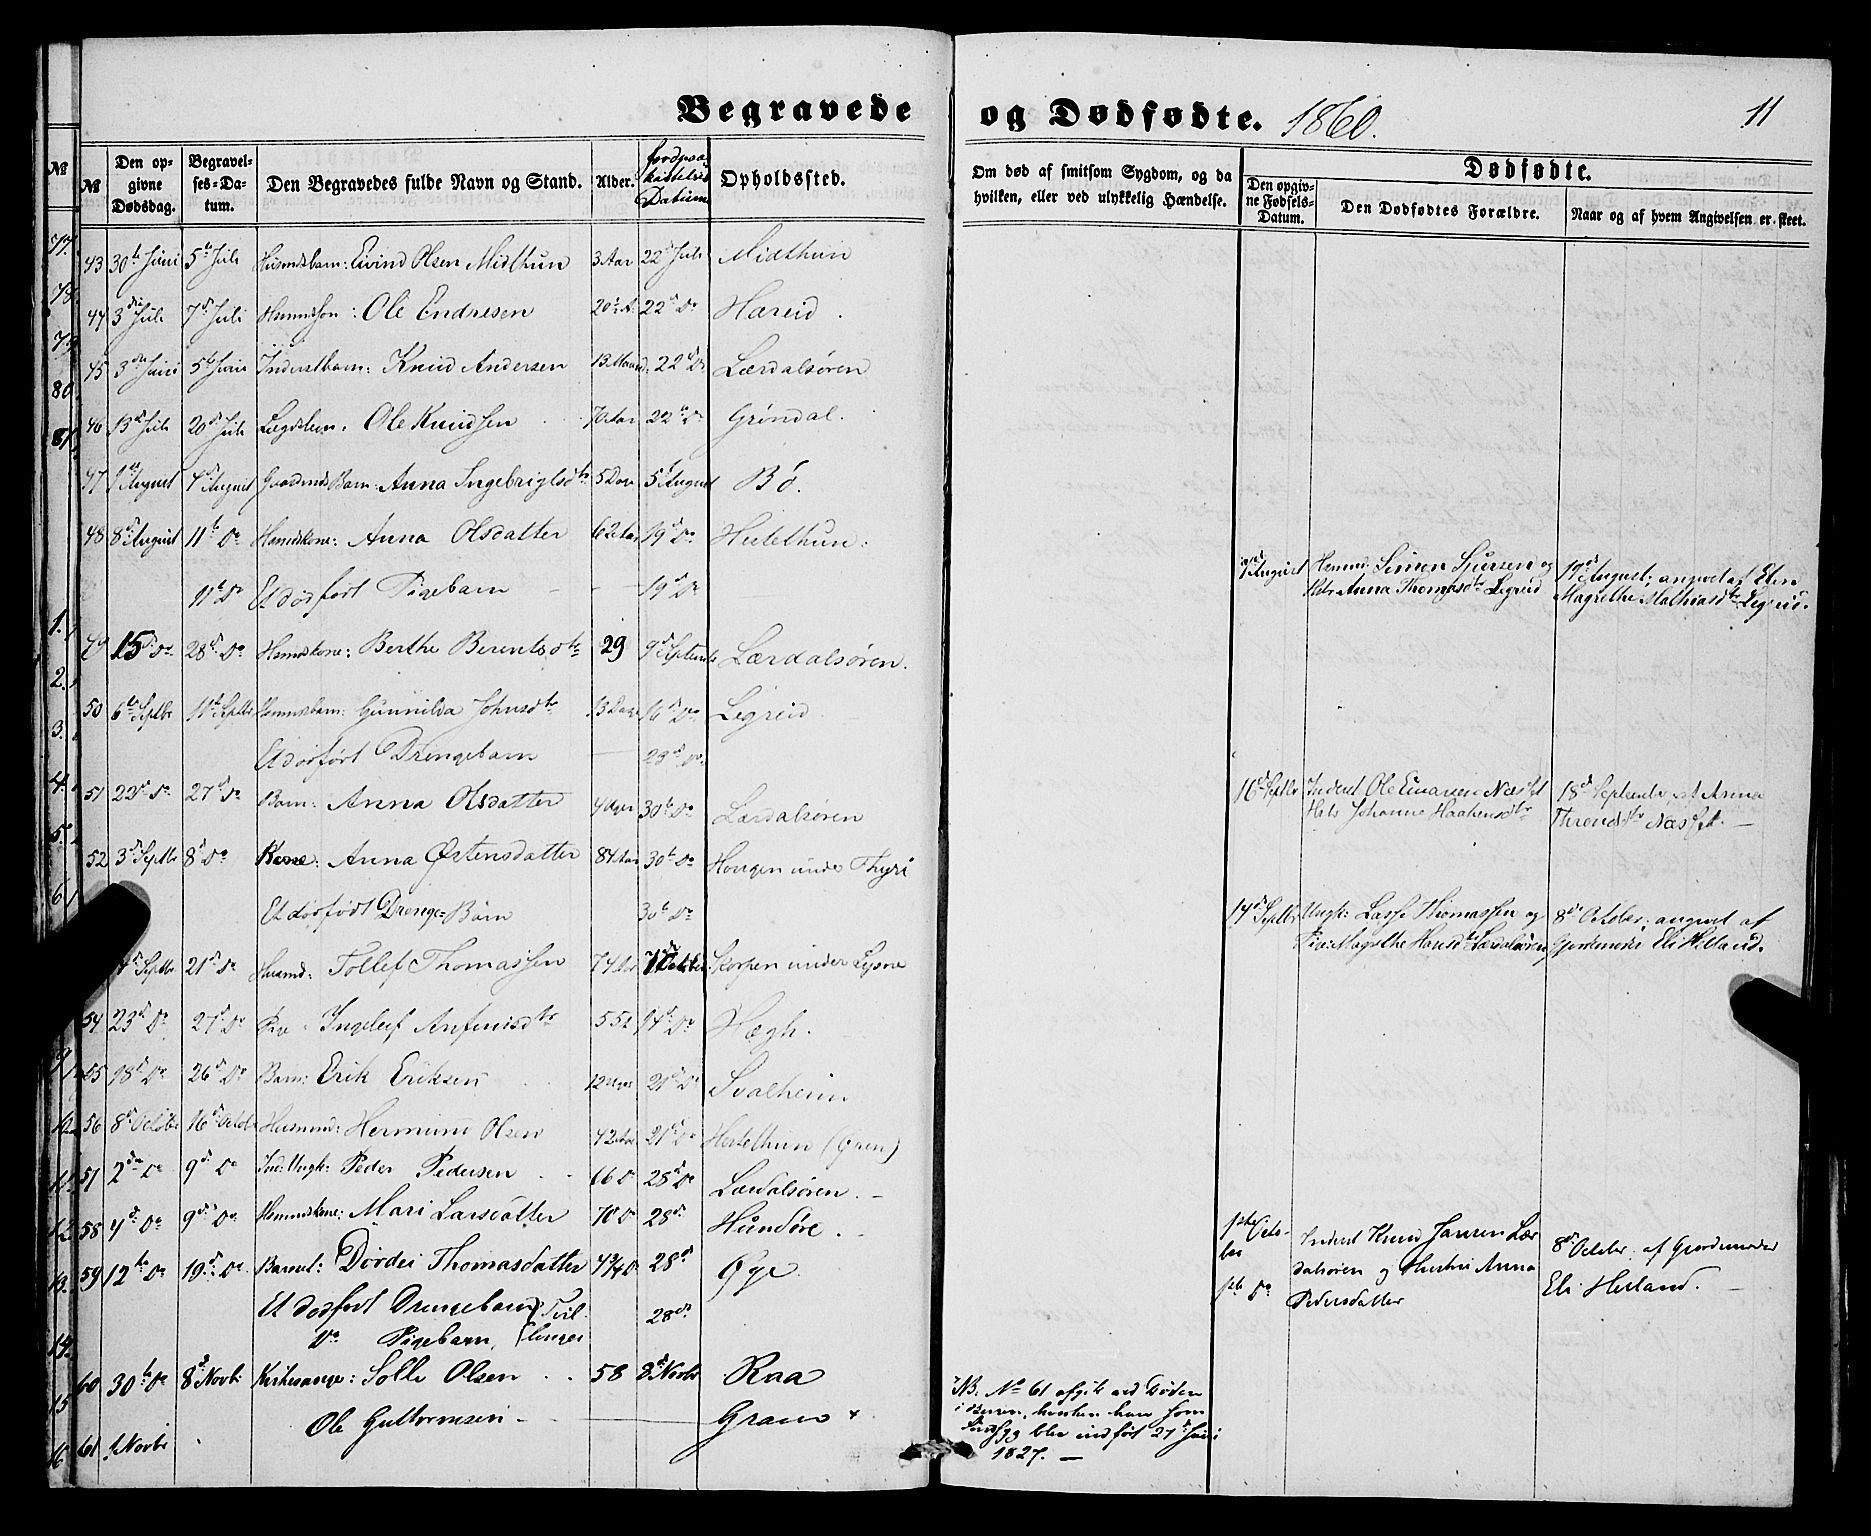 Begravede og Dødfødte. 1860. 11
№
Den opgivne Dødsdag.
Begravelses-Datum.
Den Begravedes fulde Navn og Stand.
Alder.
Datum
Opholdssted.
Om død af smitsom Sygdom, og da hvilken, eller ved ulykkelig Hændelse.
Dødfødte.
Den opgivne Fødsels-Datum.
Den Dødfødtes Forældre.
Naar og af hvem Angivelsen er skeet.
43 30te Juni 5te Juli Husmdsbarn: Eivind Olsen Midthun 3 Aar 22d Juli Midthun
44 3die Juli 7d Juli Husmdsøn: Ole Endresen 20 A. 22d Do Hæreid.
45 3die Juni 5te Juni Inderstbarn: Knud Andersen 13 Maaned. 22d Do Lærdalsøren
46 13d Juli 20d Juli Lægdslem: Ole Knudsen 70 Aar 22d Do Grøndal.
47 1ste August 4d August Gaardmds Barn: Anna Ingebrigtsdtr 5 Dage 5t August Bø.
48 8d August 11te Do Husmdskone: Anna Olsdatter 62 Aar 19d Do Hertethun.
11te Do Et dødfødt Pigebarn 19d Do
August Husmd: Simon Sjursen og Anna Thomasdtr Legreid
19d August, angivet af Elen Magrethe Mathiasdtr Legreid.
49 15d Do 28d Do Husmdskone: Berthe Berentsdtr 29 9d Septembr Lærdalsøren.
50 6te Septbr 11te Septbr Husmdsbarn: Gunnilda Johnsdtr 13 Dage 16d Do Legreid
Et dødfødt Drengebarn 23d Do
16d Septbr Inderst Ole Einarsen Næs Johanne Haakensdtr
18d Septembr, af Anna Throndsdtr Næs
51 22d Do 27d Do Barn: Anna Olsdatter 4 Uger 30te Do Lærdalsøren
52 3d Septbr 8d Do Kone: Anna Østensdatter 84 Aar 30te Do Hougen under Thyri
Et dødfødt Drenge-Barn 30te Do
14d Septbr Ungk: Lasse Thomassen og Pige Magrethe Hansdtr Lærdalsøren
8d October, angivet af Gjordemoder Eli Hilland.
Septbr 21d Do Husmd: Tollef Thomassen 74 Aar October Skorpen under Lysne
54 23d Do 27d Do Pige: Ingeleif Anfinnsdtr 55 14d Do Hægh.
55 18d Do 26d Do Barn: Erik Eriksen 12 Uger 21d Do Svalheim
56 8d Octobr 16d Octobr Husmd: Hermund Olsen 42 Aar 21d Do Hertethun (Øren)
57 2den Do 9d Do Ind: Ungk: Peder Pedersen 66 Do 28d Do Lærdalsøren.
58 4d Do 9d Do Husmdskone: Mari Larsdatter 70 Do 28d Hundøre.
59 12te Do 19d Do Barnet: Dørdei Thomasdatter 28d Øye
Et dødfødt Drengebarn } Tvillinger 28de
Do Pigebarn,
1ste October
1ste Do
Inderst Knud Jansen Lærdalsøren og Hustru Anna Pedersdatter
8d October, af Gjordemoder Eli Helland.
60 30te Do 8d Novbr Kirkesanger: Solle Olsen 58 8d Novbr Raa
61 1 Novbr Ole Guttormsen Gram +
NB. No 61 afgik ved Døden i hvorhen han som blev indført 27d Juni 1827.